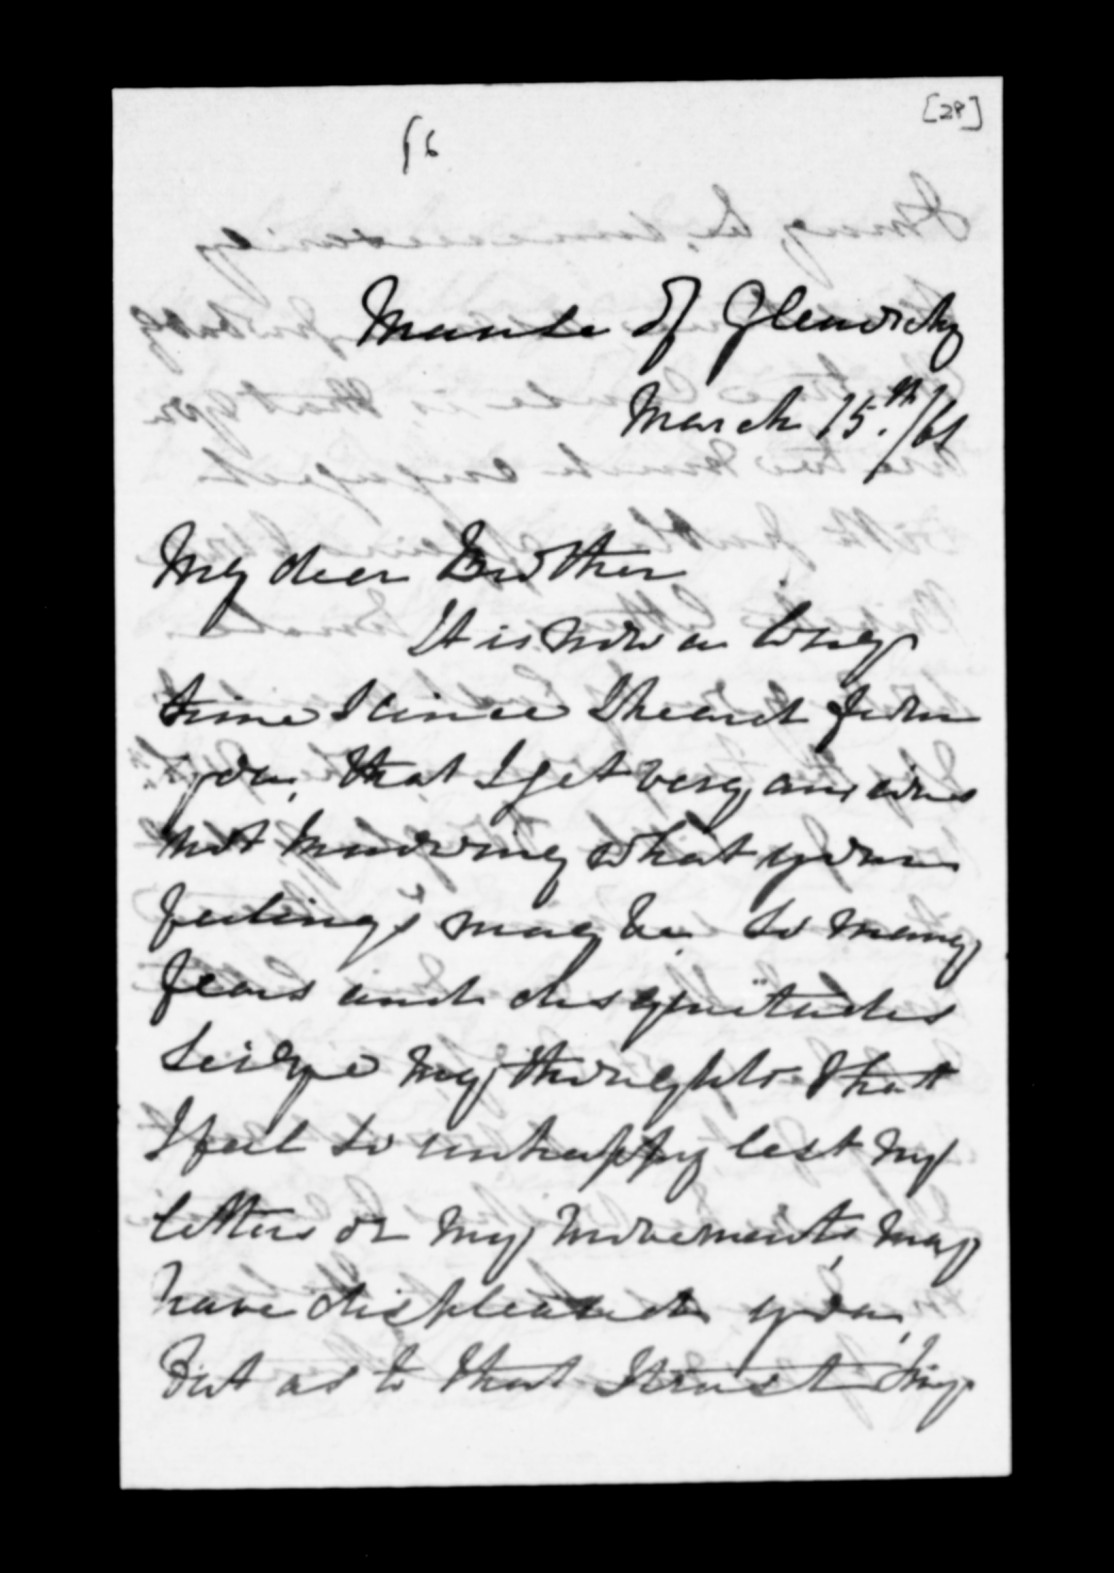 [29]
Manse of Glenorchy
March 15.th/61
My dear Brother
It is now a long
time since I heard from
you, that I get very anxious
not knowing what your
feelings may be so many
fears and disquietudes
seize my thoughts that
I feel so unhappy lest my
letters or my movements may
have displeased you,
But as to that I trust